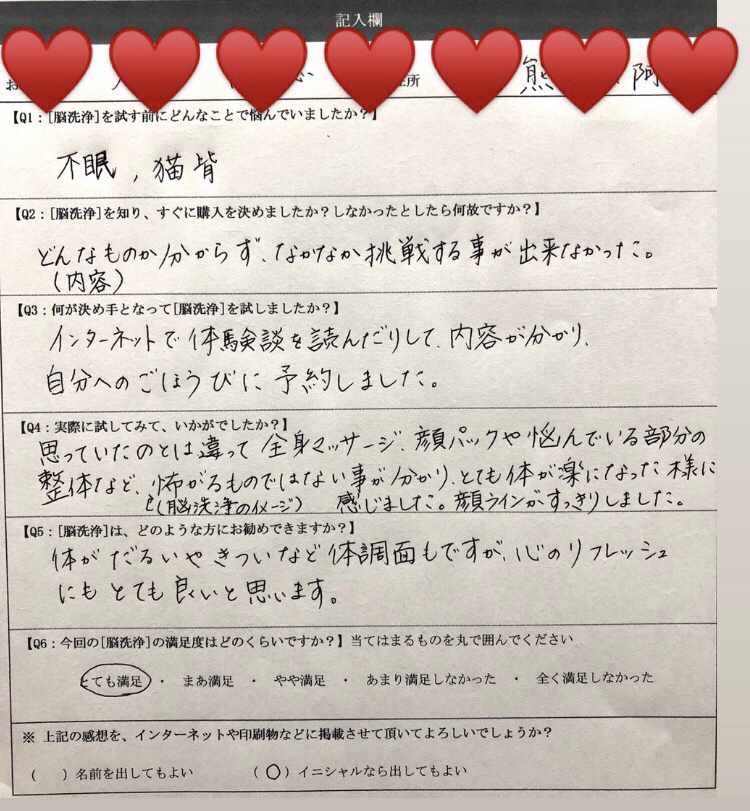 記入欄
熊 阿
【Q1：[脳洗浄]を試す前にどんなことで悩んでいましたか？】
不眠，猫背
【Q2：[脳洗浄]を知り、すぐに購入を決めましたか？しなかったとしたら何故ですか？】
どんなものか分からず、なかなか挑戦する事が出来なかった。
（内容）
【Q3：何が決め手となって[脳洗浄]を試しましたか？】
インターネットで体験談を読んだりして、内容が分かり、
自分へのごほうびに予約しました。
【Q4：実際に試してみて、いかがでしたか？】
思っていたのとは違って全身マッサージ、顔パックや悩んでいる部分の
整体など、怖がるものではない事が分かり、とても体が楽になった様に
（脳洗浄のイメージ） 感じました。顔ラインがすっきりしました。
【Q5：[脳洗浄]は、どのような方にお勧めできますか？】
体がだるいやきついなど体調面もですが、心のリフレッシュ
にもとても良いと思います。
【Q6：今回の[脳洗浄]の満足度はどのくらいですか？】当てはまるものを丸で囲んでください
とても満足 ・ まあ満足 ・ やや満足 ・ あまり満足しなかった ・ 全く満足しなかった
※ 上記の感想を、インターネットや印刷物などに掲載させて頂いてよろしいでしょうか？
（ ）名前を出してもよい （○）イニシャルなら出してもよい